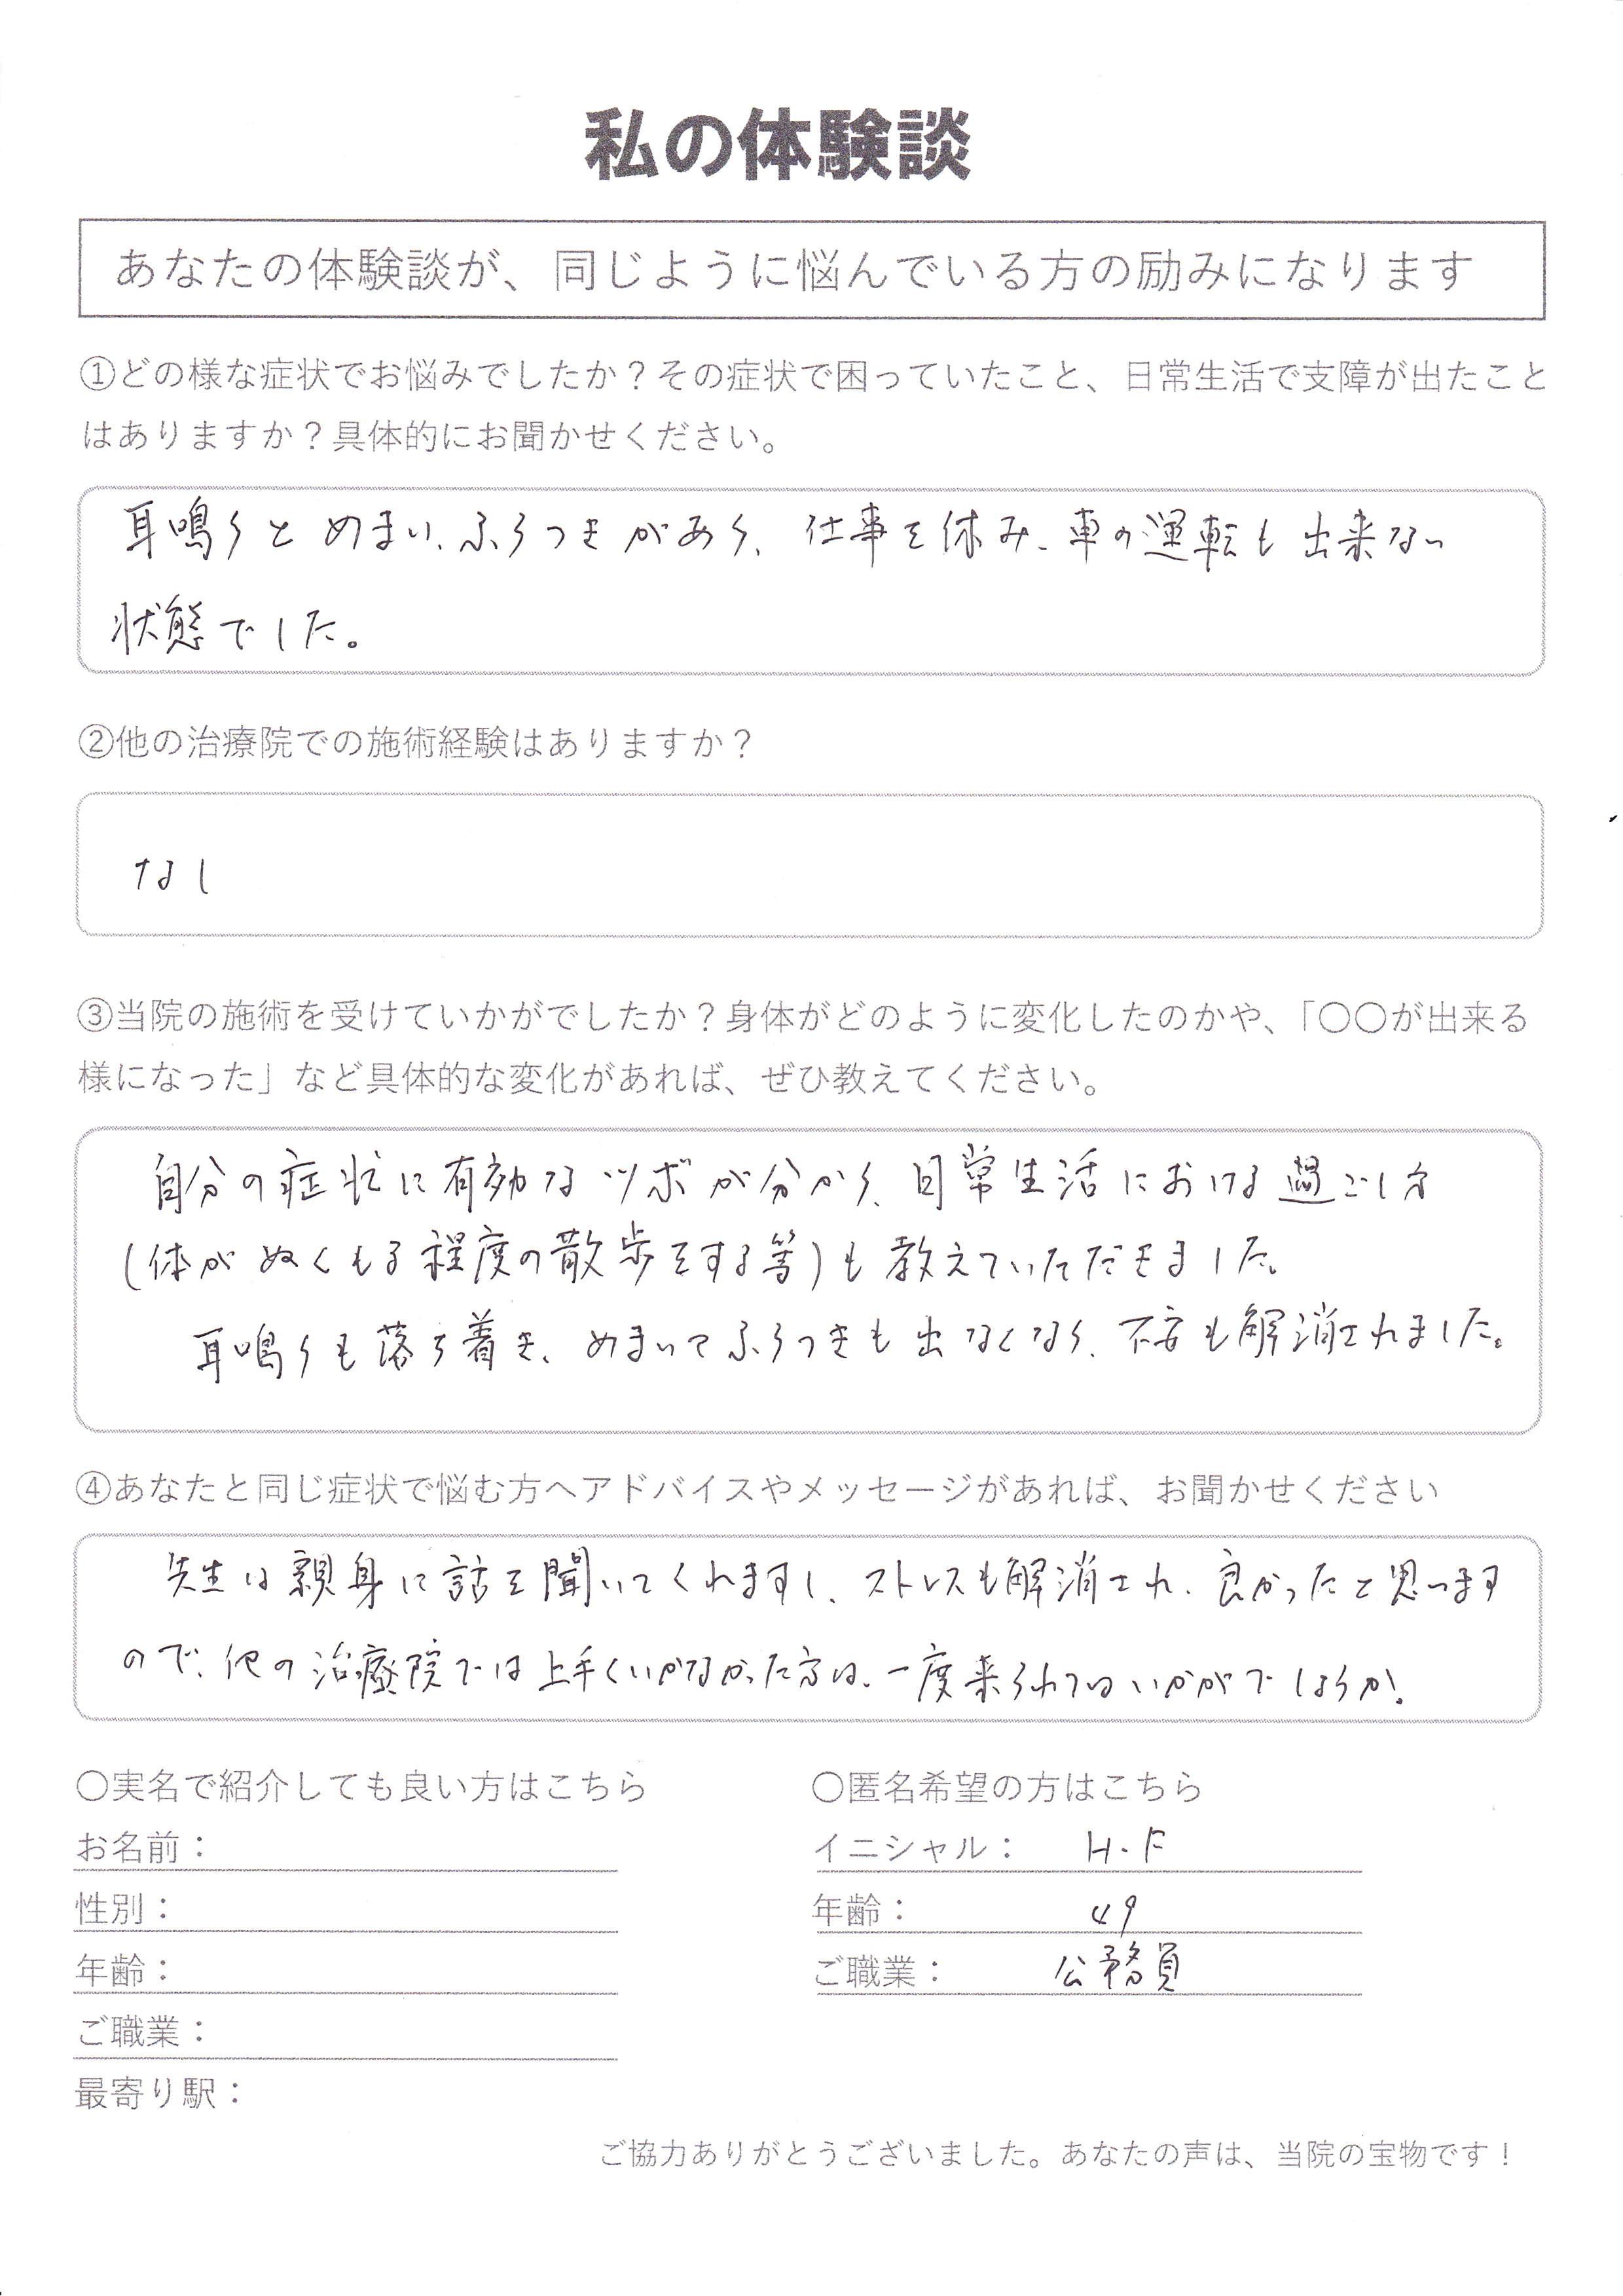 私の体験談
あなたの体験談が、同じように悩んでいる方の励みになります
①どの様な症状でお悩みでしたか？その症状で困っていたこと、日常生活で支障が出たこと
はありますか？具体的にお聞かせください。
耳鳴りとめまい、ふらつきがあり、仕事を休み、車の運転も出来ない
状態でした。
②他の治療院での施術経験はありますか？
なし
③当院の施術を受けていかがでしたか？身体がどのように変化したのかや、「〇〇が出来る
様になった」など具体的な変化があれば、ぜひ教えてください。
自分の症状に有効なツボが分かり、日常生活における過ごし方
(体がぬくもる程度の散歩をする等)も教えていただきました。
耳鳴りも落ち着き、めまいやふらつきも出なくなり、不安も解消されました。
④あなたと同じ症状で悩む方へアドバイスやメッセージがあれば、お聞かせください
先生は親身に話を聞いてくれますし、ストレスも解消され、良かったと思います
ので、他の治療院では上手くいかなかった方は、一度来られてはいかがでしょうか。
〇実名で紹介しても良い方はこちら
お名前：
性別：
年齢：
ご職業：
最寄り駅：
〇匿名希望の方はこちら
イニシャル： H.F
年齢： 49
ご職業： 公務員
ご協力ありがとうございました。あなたの声は、当院の宝物です！